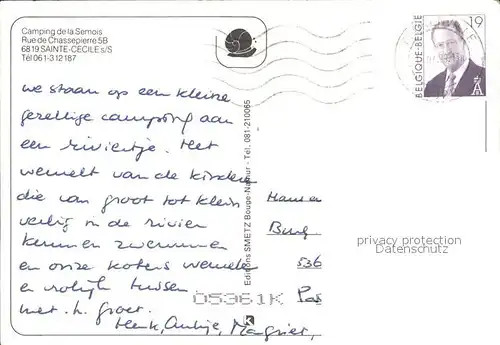 Camping de la Semois
Rue de Chassepierre 5B
6819 SAINTE-CECILE s/S
Tél 061-312187
we staan op een kleine
gezellige camping aan
een riviertje. Het
wemelt van de kinderen
die van groot tot klein
veilig in de rivier
kunnen zwemmen
en onze koters wemelen
en vrolijk tussen
met h. groet.
Henk, Antje,
Editions SMETZ Bouge-Namur - Tél. 081-210065
BELGIQUE-BELGIE
19
Burg
536
Pos
05361K
K
privacy protection
Datenschutz